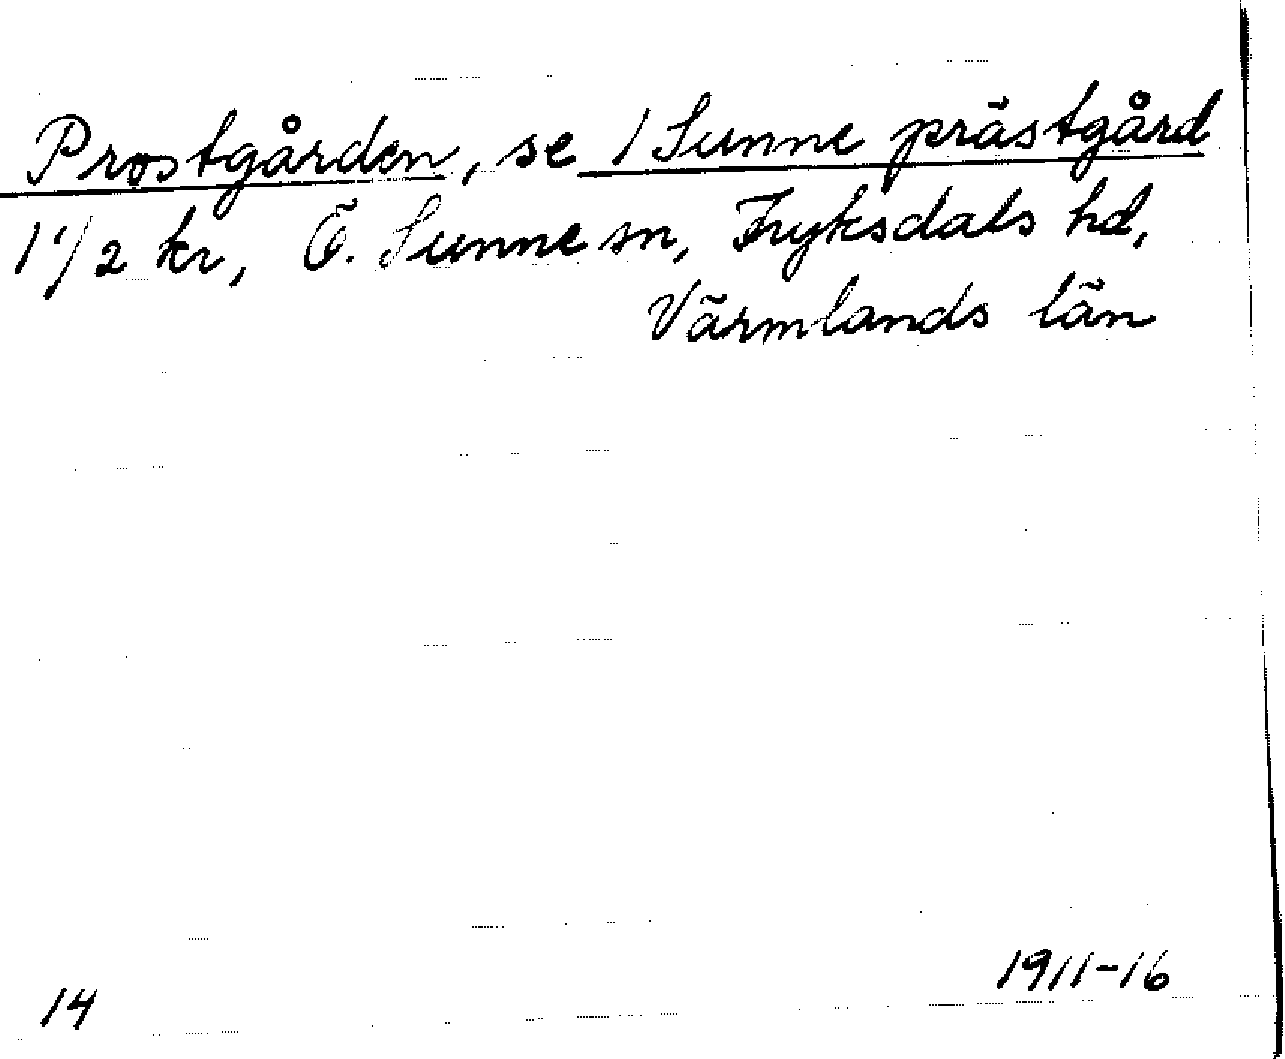 Prostgården, se / Sunne prästgård
1 1/2 kr, Ö. Sunne sn, Fryksdals hd,
Värmlands län
1911-16
14